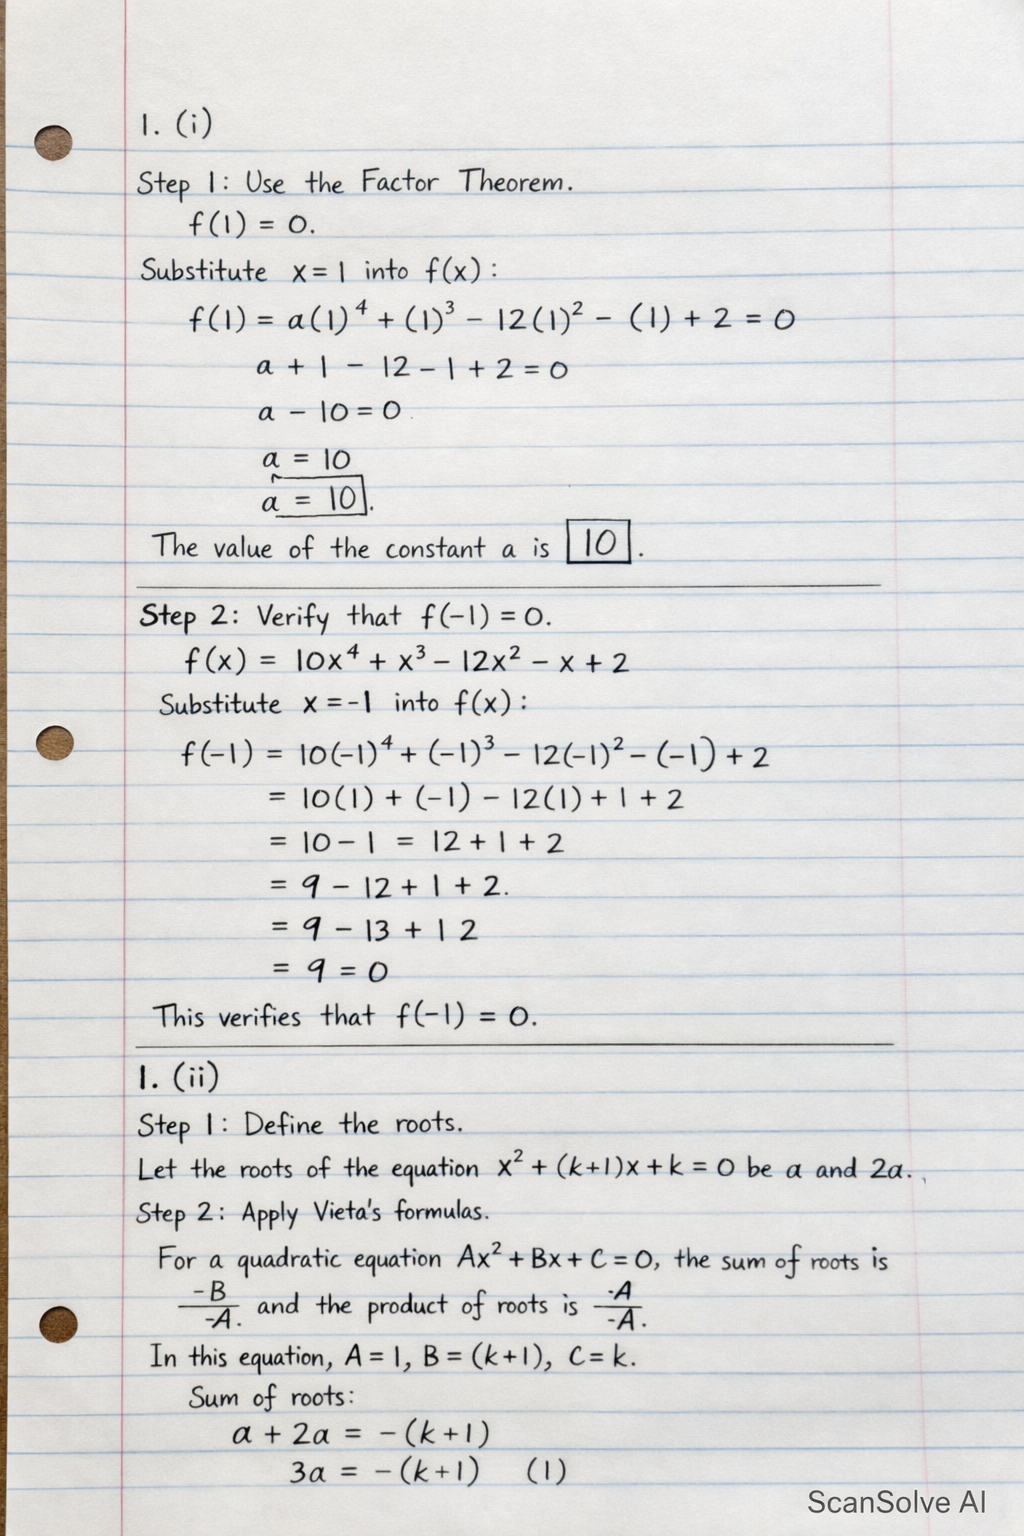 1. (i)
Step 1: Use the Factor Theorem.
f(1) = 0.
Substitute x = 1 into f(x):
f(1) = a(1)⁴ + (1)³ – 12(1)² – (1) + 2 = 0
a + 1 – 12 – 1 + 2 = 0
a – 10 = 0
a = 10
a = 10.
The value of the constant a is 10.
Step 2: Verify that f(-1) = 0.
f(x) = 10x⁴ + x³ – 12x² – x + 2
Substitute x = -1 into f(x):
f(-1) = 10(-1)⁴ + (-1)³ – 12(-1)² – (-1) + 2
= 10(1) + (-1) – 12(1) + 1 + 2
= 10 – 1 = 12 + 1 + 2
= 9 – 12 + 1 + 2.
= 9 – 13 + 1 2
= 9 = 0
This verifies that f(-1) = 0.
1. (ii)
Step 1: Define the roots.
Let the roots of the equation x² + (k+1)x + k = 0 be a and 2a.
Step 2: Apply Vieta's formulas.
For a quadratic equation Ax² + Bx + C = 0, the sum of roots is
-B/-A. and the product of roots is -A/-A.
In this equation, A = 1, B = (k+1), C = k.
Sum of roots:
a + 2a = -(k+1)
3a = -(k+1) (1)
ScanSolve AI